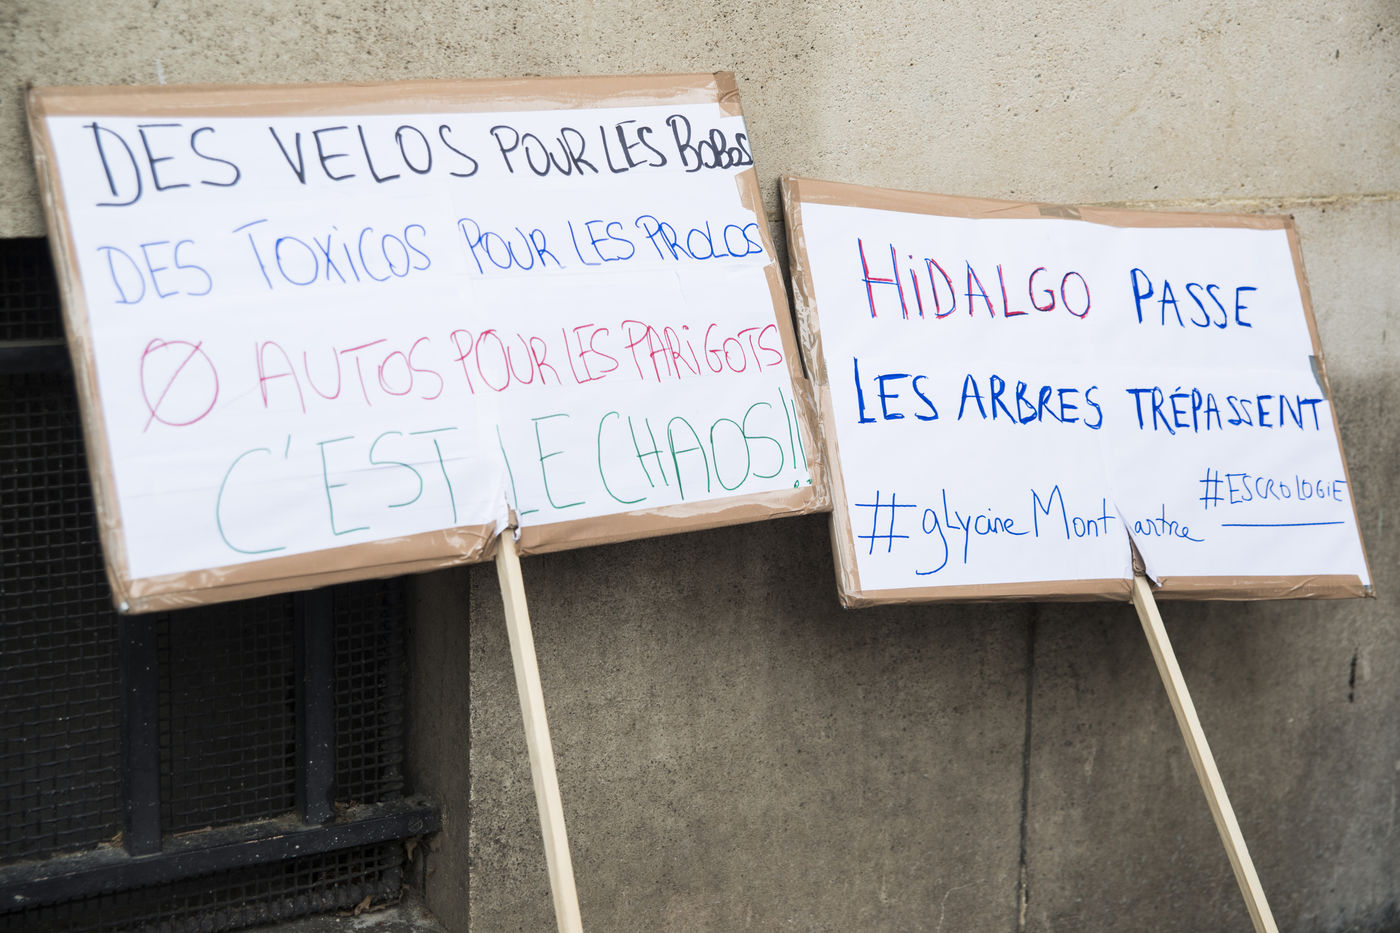 DES VELOS POUR LES BoBoS
DES TOXiCOS POUR LES PROLOS
Ø AUTOS POUR LES PARiGOTS
C'EST LE CHAOS!!
HiDALGO PASSE
LES ARBRES TRÉPASSENT
#gLycine Montmartre #ESCROLOGIE